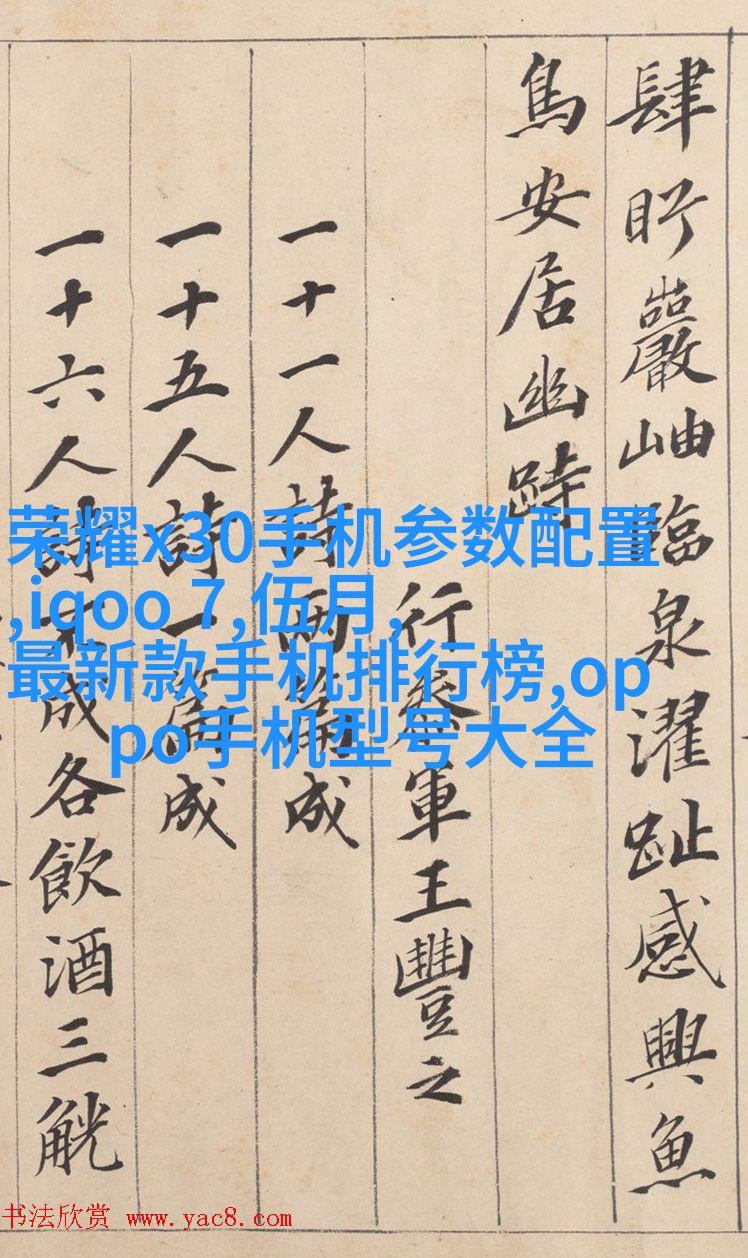 肆盻巖岫臨泉濯趾感興魚
鳥安居幽跱
行參軍王豐之
一十一人詩兩篇成
一十五人詩一篇成
一十六人詩不成各飲酒三觥
荣耀x30手机参数配置
,iqoo 7,伍月,
最新款手机排行榜,op
po手机型号大全
书法欣赏 www.yac8.com